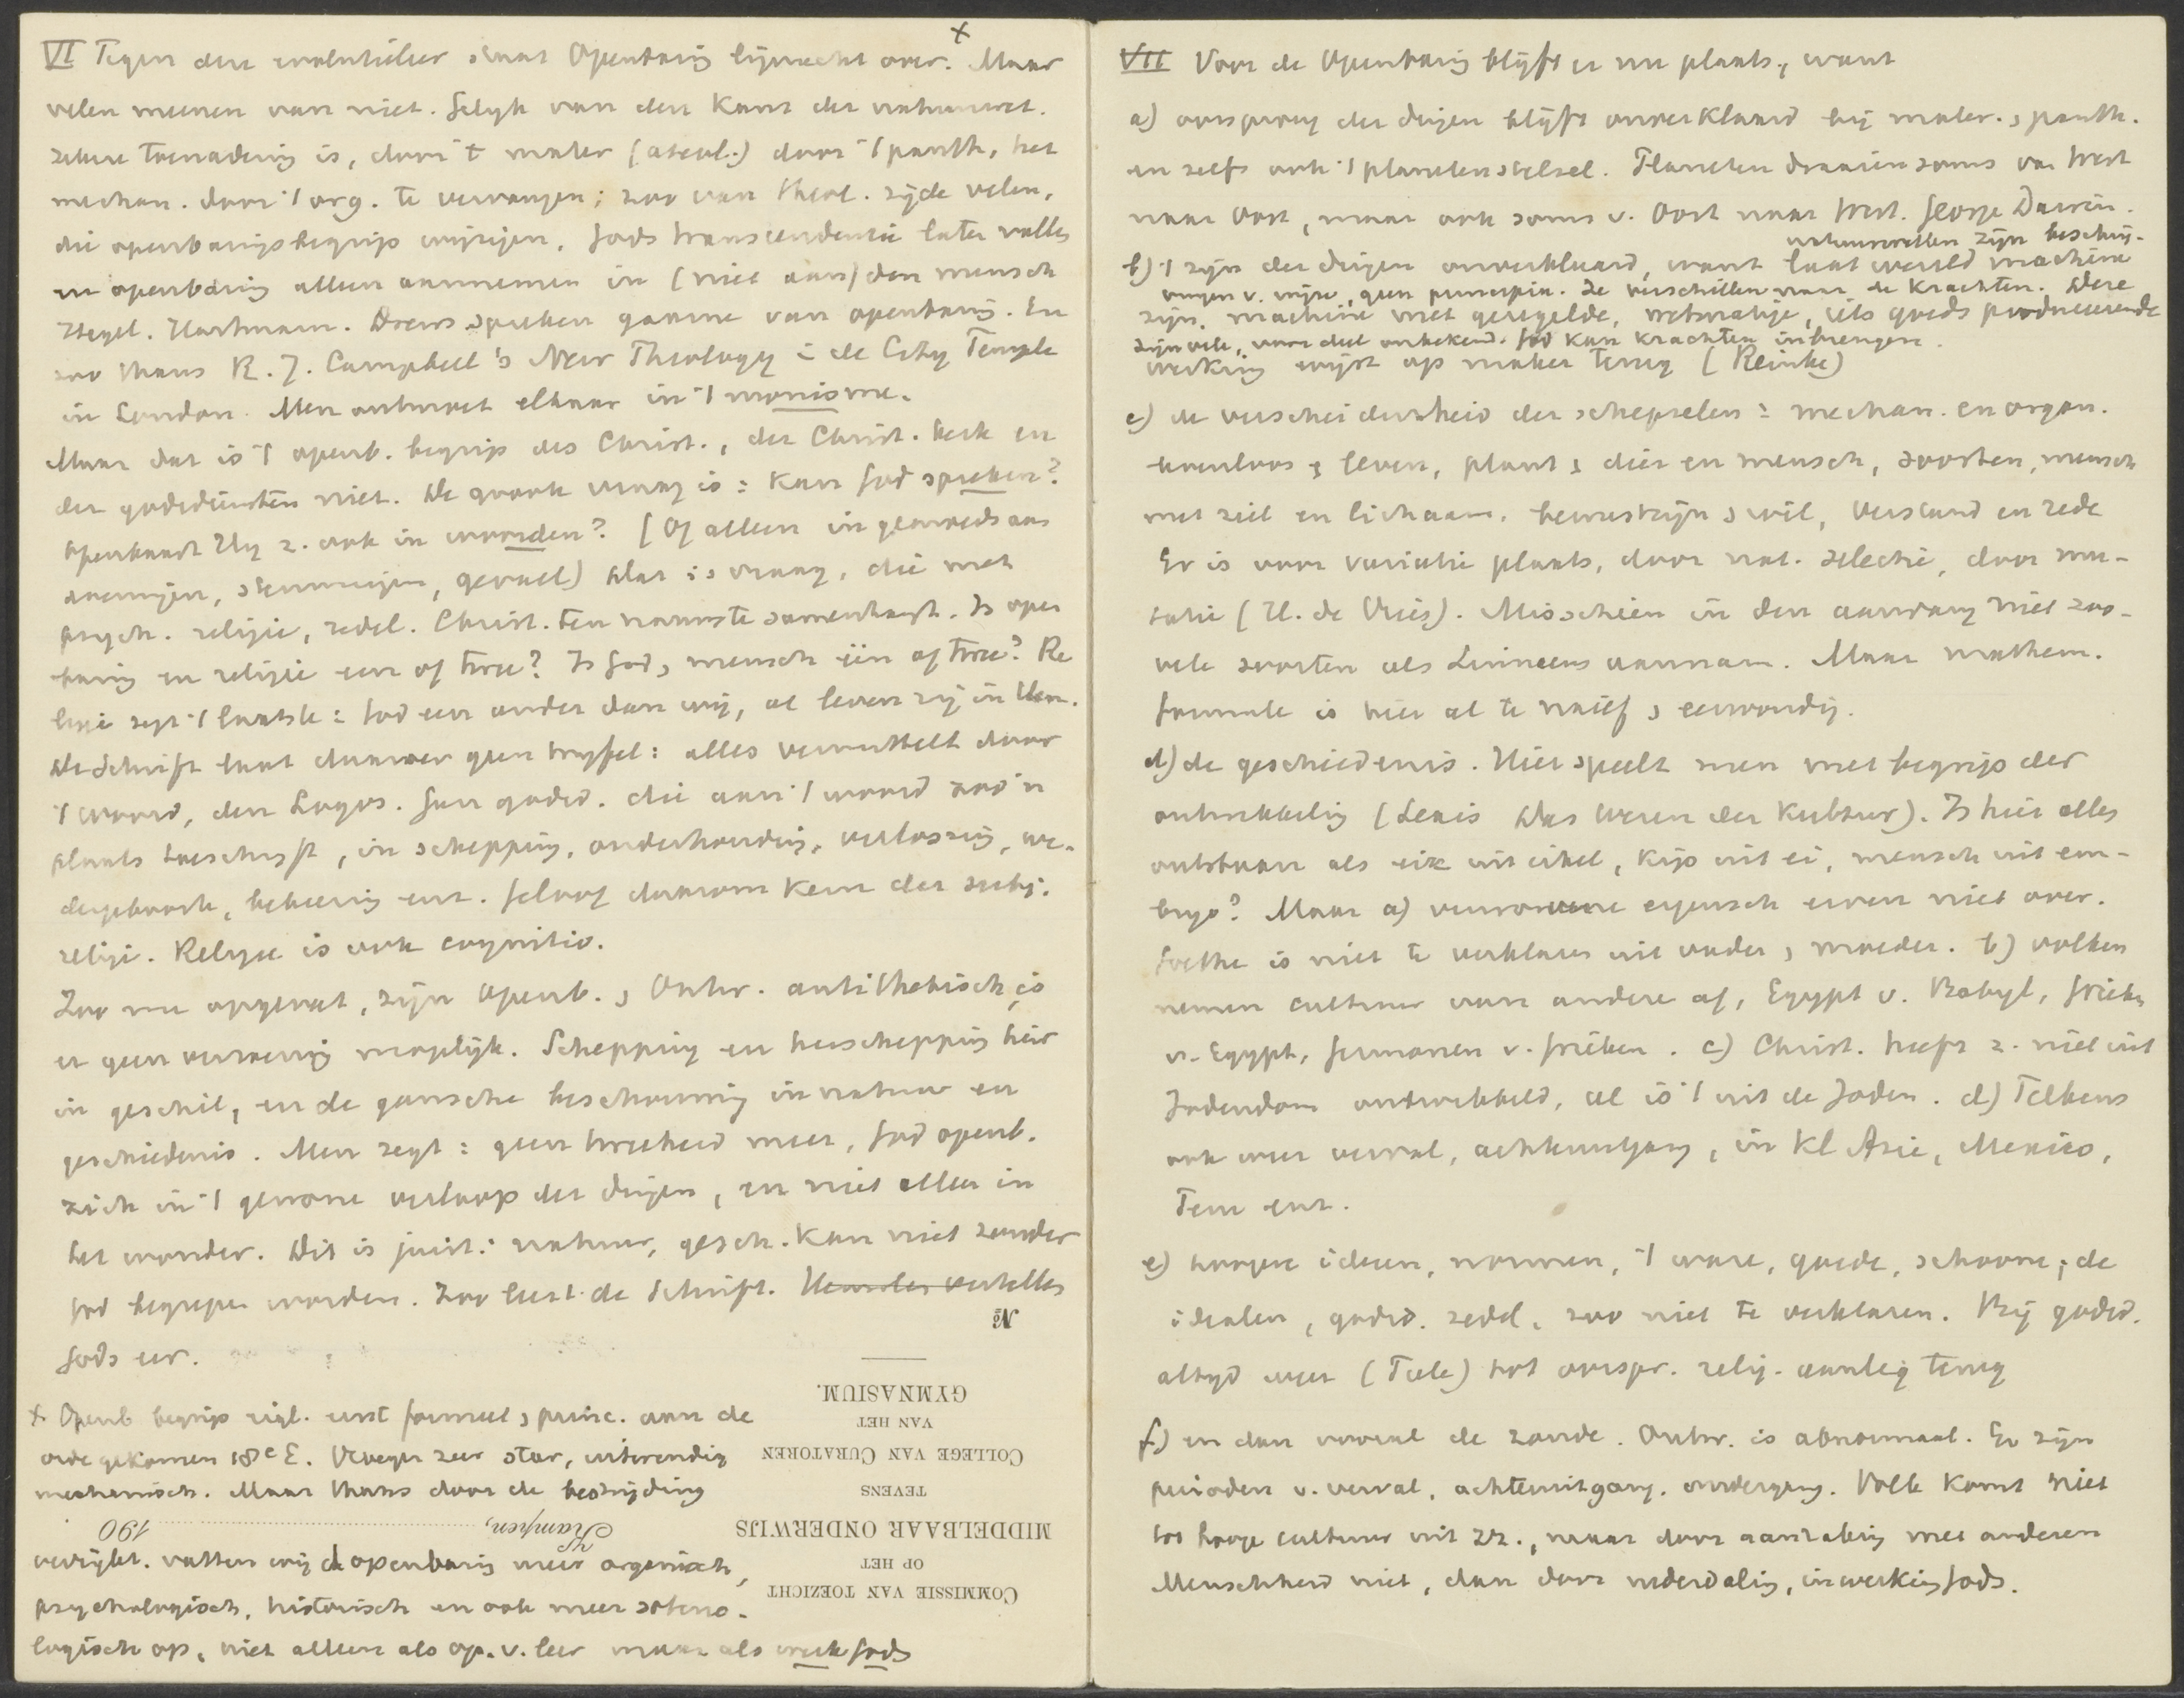 VI Tegen deze evolutieleer staat Openbaring lijnrecht over. x Maar
velen meenen van niet. Gelijk van den kant der natuurwet.
zekere toenadering is, door 't mater (atheol.) door 't panth, het
mechan. door 't org. te vervangen; zoo van theol. zijde velen,
die openbaringsbegrip wijzigen, Gods transcendentie laten vallen
en openbaring alleen aannemen in (niet aan) den mensch
Hegel. Hartmann. Drews spreken gaarne van openbaring. En
zoo thans R. J. Campbell's New Theology i de City Temple
in London. Men ontmoet elkaar in 't monisme.
Maar dat is 't openb. begrip des Christ., der Christ. kerk en
der godsdiensten niet. De groote vraag is: Kan God spreken?
Openbaart Hij z. ook in woorden? (Of alleen in gemoedsaan
doeningen, stemmingen, gevoel) Dat is vraag, die met
psych. religie, redel. Christ. ten nauwste samenhangt. Is open
baring en religie een of twee? Is God, mensch één of twee? Re
ligie zegt 't laatste: God een ander dan wij, al leven wij in Hem.
De Schrift laat daarover geen twijfel: alles bemiddelt door
't woord, den Logos. Geen godsd. die aan 't woord zoo'n
plaats toeschrijft, in schepping, onderhouding, verlossing, we-
dergeboorte, bekeering enz. Geloof daarom kern der subj.
religie. Religie is ook cognitio.
Zoo nu opgevat, zijn Openb. , Ontw. antithetisch, is
er geen verzoening mogelijk. Schepping en herschepping hier
in geschil, en de gansche beschouwing in natuur en
geschiedenis. Men zegt: geen tweeheid meer, God openb.
zich in 't gewone verloop der dingen, en niet alleen in
het wonder. Dit is juist: natuur, gesch. kan niet zonder
God begrepen worden. Zoo leert de Schrift. Hemelen vertellen
Gods eer.
x Openb begrip eigl. eerst formeel, princ. aan de
orde gekomen 18e E. Vroeger zeer star, uitwendig
mechanisch. Maar thans door de bestrijding
verrijkt. vatten wij de openbaring meer organisch,
psychologisch, historisch en ook meer soterio-
logisch op, niet alleen als op. v. leer maar als werk Gods
No
GYMNASIUM.
VAN HET
COLLEGE VAN CURATOREN
TEVENS
MIDDELBAAR ONDERWIJS
OP HET
COMMISSIE VAN TOEZICHT
Kampen, 190
VII Voor de Openbaring blijft er nu plaats, want
a) oorsprong der dingen blijft onverklaard bij mater. , panth.
en zelfs ook 't planetenstelsel. Planeten draaien soms van West
naar Oost, maar ook soms v. Oost naar West. George Darwin.
b) 't zijn der dingen onverklaard, want laat wereld machine
natuurwetten zijn beschrij-
vingen v. wijze, geen principia. Ze verschillen naar de krachten. Deze
zijn. machine met geregelde, wetmatige, iets goeds produceerende
zijn vele, voor deel onbekend. God kan krachten inbrengen.
werking wijst op maker terug (Reinke)
c) de verscheidenheid der schepselen: mechan. en organ.
levenloos , leven, plant , dier en mensch, soorten, mensch
met ziel en lichaam. bewustzijn , wil, verstand en rede
Er is voor variatie plaats, door nat. selectie, door mu-
tatie (H. de Vries). Misschien in den aanvang niet zoo-
vele soorten als Linnaeus aannam. Maar mathem.
formule is hier al te naief , eenvoudig.
d) de geschiedenis. Hier speelt men met begrip der
ontwikkeling (Lexis Das Wesen der Kultur). Is hier alles
ontstaan als eik uit eikel, kip uit ei, mensch uit em-
bryo? Maar a) verworvene eigensch erven niet over.
Goethe is niet te verklaren uit vader , moeder. b) volken
nemen cultuur van andere af, Egypt v. Babyl, Grieken
v. Egypt, Germanen v. Grieken. c) Christ. heeft z. niet uit
Jodendom ontwikkeld, al is 't uit de Joden. d) Telkens
ook weer verval, achteruitgang, in Kl Azie, Mexico,
Peru enz.
e) hoogere ideen, normen, 't ware, goede, schoone; de
idealen, godsd. zedel, zoo niet te verklaren. Bij godsd.
altijd weer (Tiele) tot oorspr. relig. aanleg terug
f) en dan vooral de zonde. Ontw. is abnormaal. Er zijn
perioden v. verval, achteruitgang. ondergang. Volk komt niet
tot hooge cultuur uit zz., maar door aanraking met anderen
Menschheid niet, dan door nederdaling, inwerking Gods.